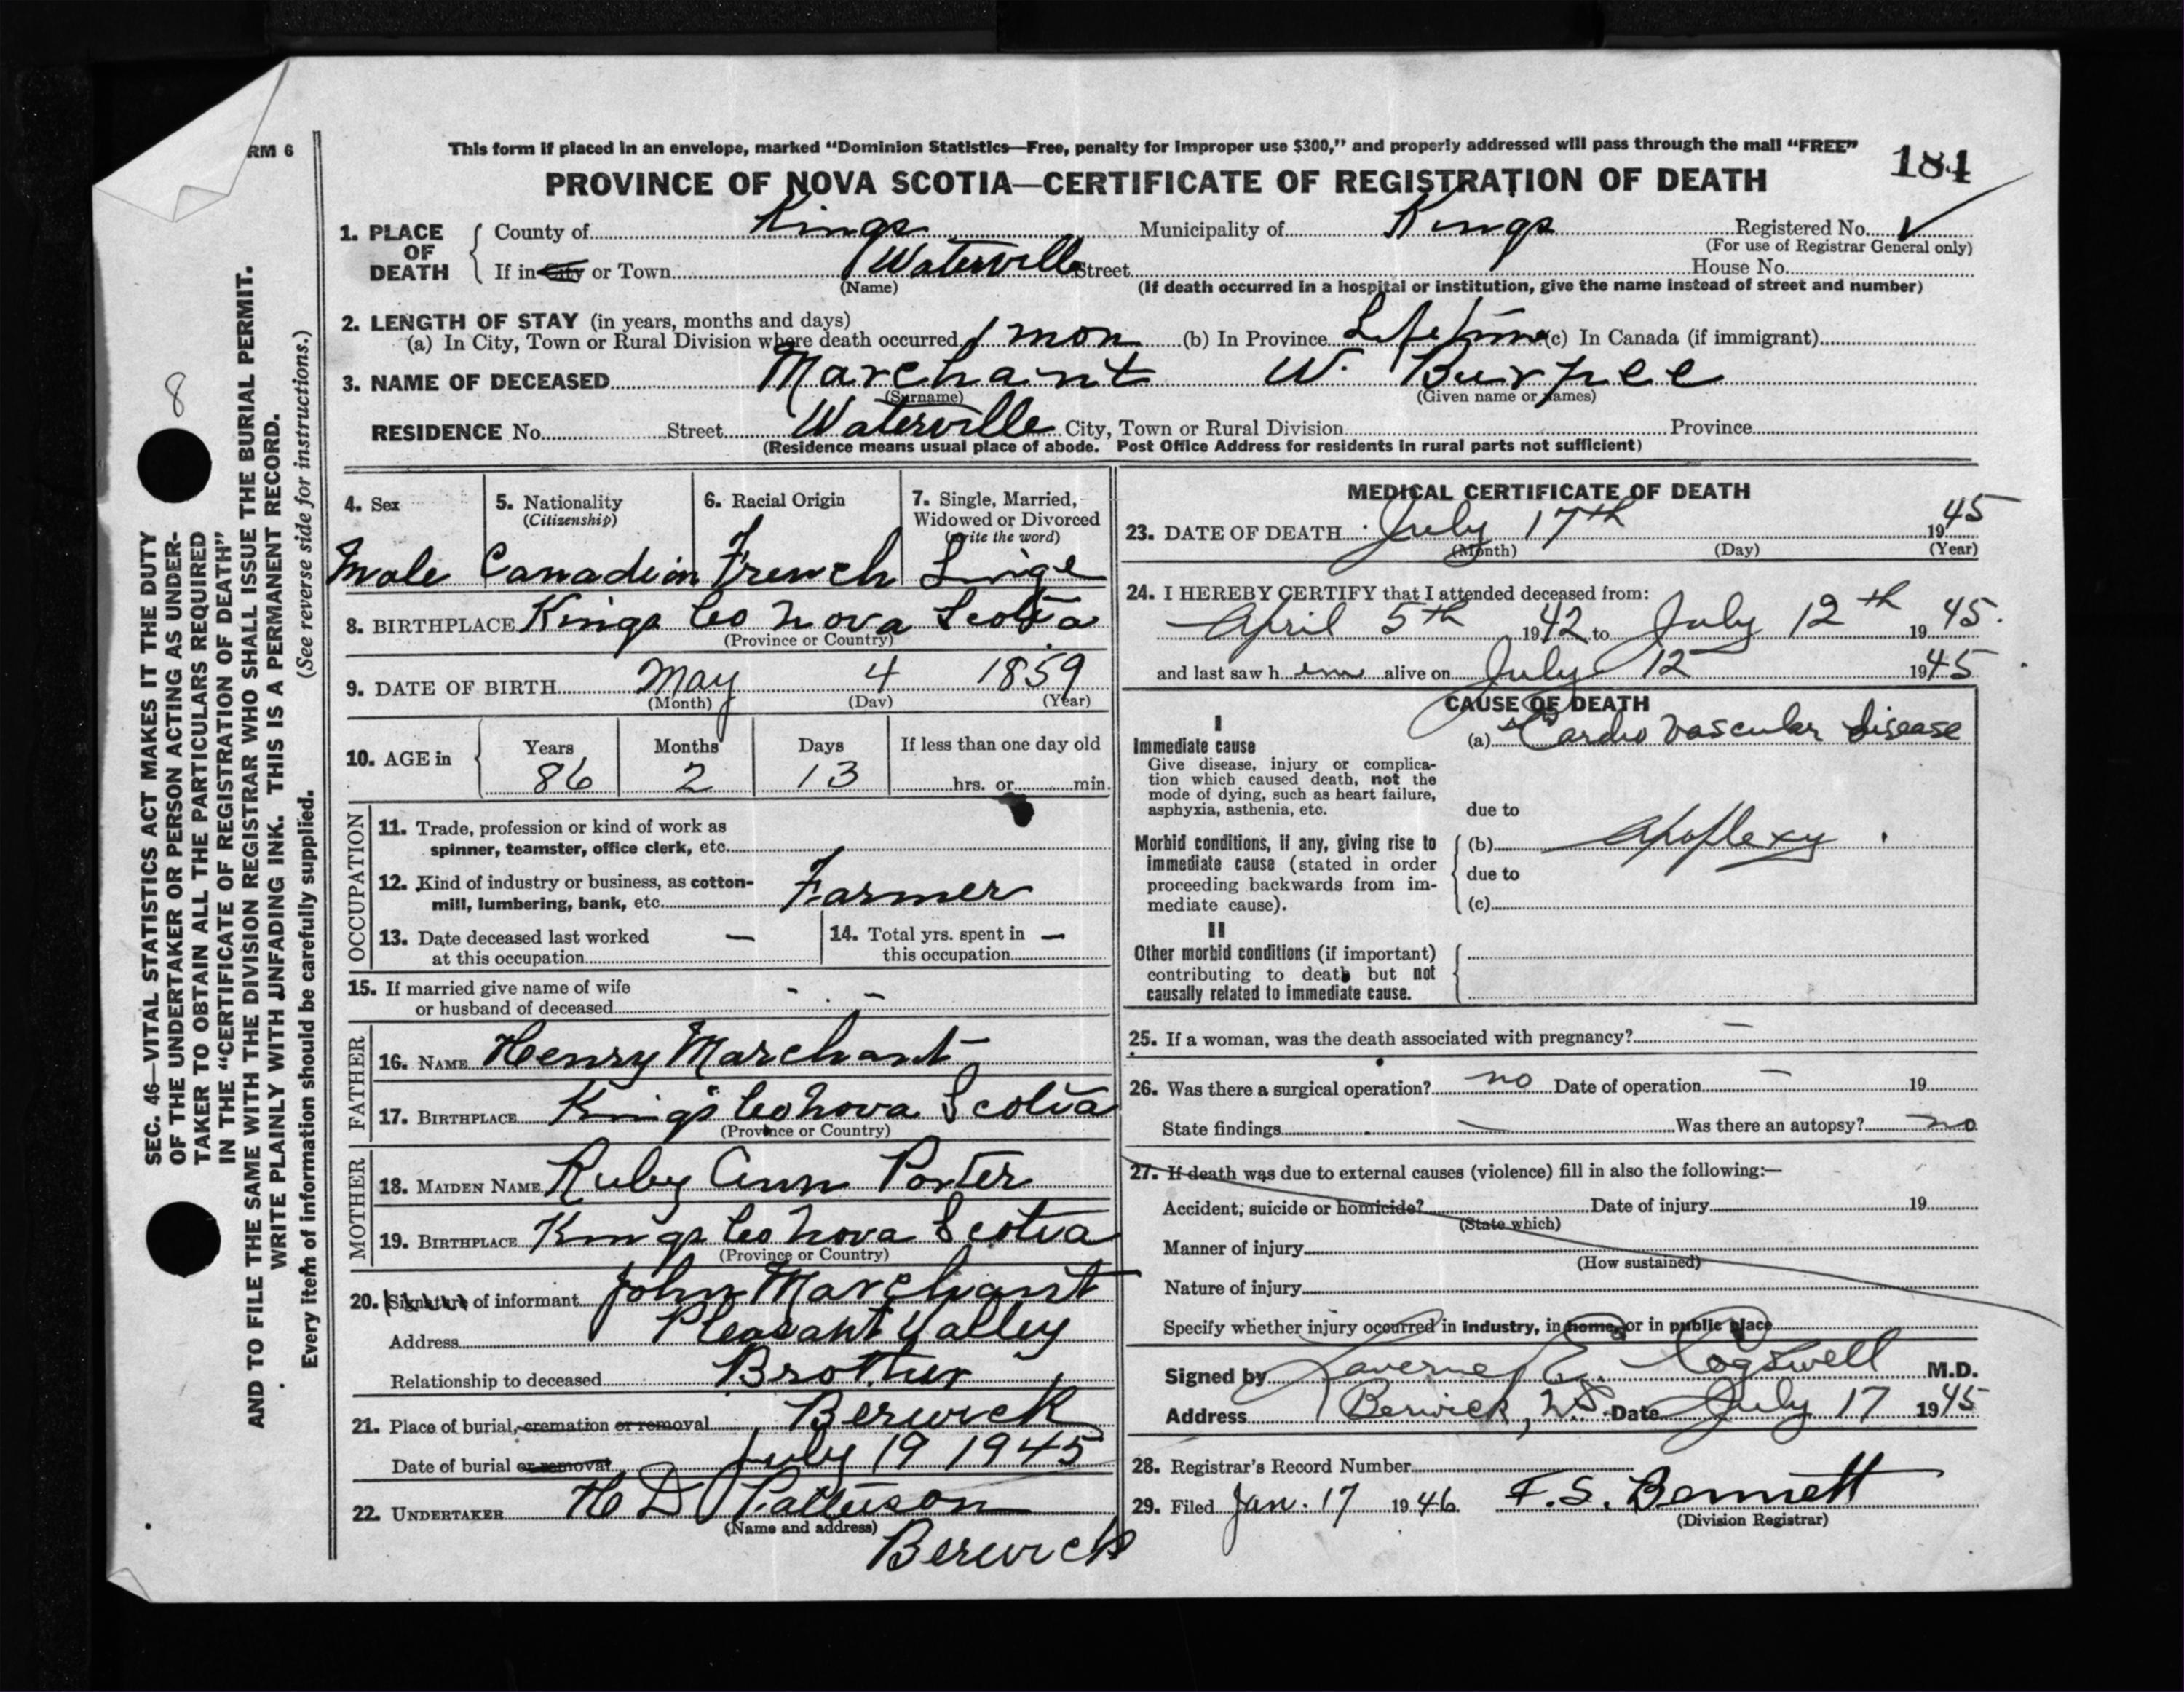 RM 6
This form if placed in an envelope, marked “Dominion Statistics—Free, penalty for improper use $300,” and properly addressed will pass through the mail “FREE”
184
PROVINCE OF NOVA SCOTIA—CERTIFICATE OF REGISTRATION OF DEATH
1. PLACE OF DEATH County of Kings Municipality of Kings Registered No. ✓
(For use of Registrar General only)
If in City or Town Waterville Street House No.
(Name) (If death occurred in a hospital or institution, give the name instead of street and number)
2. LENGTH OF STAY (in years, months and days)
(a) In City, Town or Rural Division where death occurred 1 mon (b) In Province Lifetime (c) In Canada (if immigrant)
3. NAME OF DECEASED Marchant W. Burpee
(Surname) (Given name or names)
RESIDENCE No. Street Waterville City, Town or Rural Division Province
(Residence means usual place of abode. Post Office Address for residents in rural parts not sufficient)
4. Sex 5. Nationality (Citizenship) 6. Racial Origin 7. Single, Married, Widowed or Divorced (write the word)
Male Canadian French Singe
8. BIRTHPLACE Kings Co Nova Scotia
(Province or Country)
9. DATE OF BIRTH May 4 1859
(Month) (Day) (Year)
10. AGE in Years Months Days If less than one day old
86 2 13 hrs. or min.
OCCUPATION
11. Trade, profession or kind of work as
spinner, teamster, office clerk, etc.
12. Kind of industry or business, as cotton-
mill, lumbering, bank, etc. Farmer
13. Date deceased last worked — 14. Total yrs. spent in —
at this occupation this occupation
15. If married give name of wife
or husband of deceased - . -
FATHER
16. NAME Henry Marchant
17. BIRTHPLACE King's Co Nova Scotia
(Province or Country)
MOTHER
18. MAIDEN NAME Ruby Ann Porter
19. BIRTHPLACE Kings Co Nova Scotia
(Province or Country)
20. Signature of informant John Marchant
Address Pleasant Valley
Relationship to deceased Brother
21. Place of burial, cremation or removal Berwick
Date of burial or removal July 19 1945
22. UNDERTAKER H D Patterson
(Name and address)
Berwick
MEDICAL CERTIFICATE OF DEATH
23. DATE OF DEATH July 17th 1945
(Month) (Day) (Year)
24. I HEREBY CERTIFY that I attended deceased from:
April 5th 1942 to July 12th 1945.
and last saw h im alive on July 12 1945.
CAUSE OF DEATH
I
Immediate cause (a) Cardio Vascular disease
Give disease, injury or complica-
tion which caused death, not the
mode of dying, such as heart failure,
asphyxia, asthenia, etc. due to
Morbid conditions, if any, giving rise to (b) Apoplexy.
immediate cause (stated in order
proceeding backwards from im- due to
mediate cause). (c)
II
Other morbid conditions (if important)
contributing to death but not
causally related to immediate cause.
25. If a woman, was the death associated with pregnancy? —
26. Was there a surgical operation? no Date of operation — 19
State findings — Was there an autopsy? no
27. If death was due to external causes (violence) fill in also the following:—
Accident, suicide or homicide? Date of injury 19
(State which)
Manner of injury
(How sustained)
Nature of injury
Specify whether injury occurred in industry, in home, or in public place
Signed by Laverne E. Cogswell M.D.
Address Berwick, N.S. Date July 17 1945
28. Registrar's Record Number
29. Filed Jan. 17 1946 F. S. Bennett
(Division Registrar)
8
SEC. 46—VITAL STATISTICS ACT MAKES IT THE DUTY
OF THE UNDERTAKER OR PERSON ACTING AS UNDER-
TAKER TO OBTAIN ALL THE PARTICULARS REQUIRED
IN THE “CERTIFICATE OF REGISTRATION OF DEATH”
AND TO FILE THE SAME WITH THE DIVISION REGISTRAR WHO SHALL ISSUE THE BURIAL PERMIT.
WRITE PLAINLY WITH UNFADING INK. THIS IS A PERMANENT RECORD.
Every item of information should be carefully supplied. (See reverse side for instructions.)